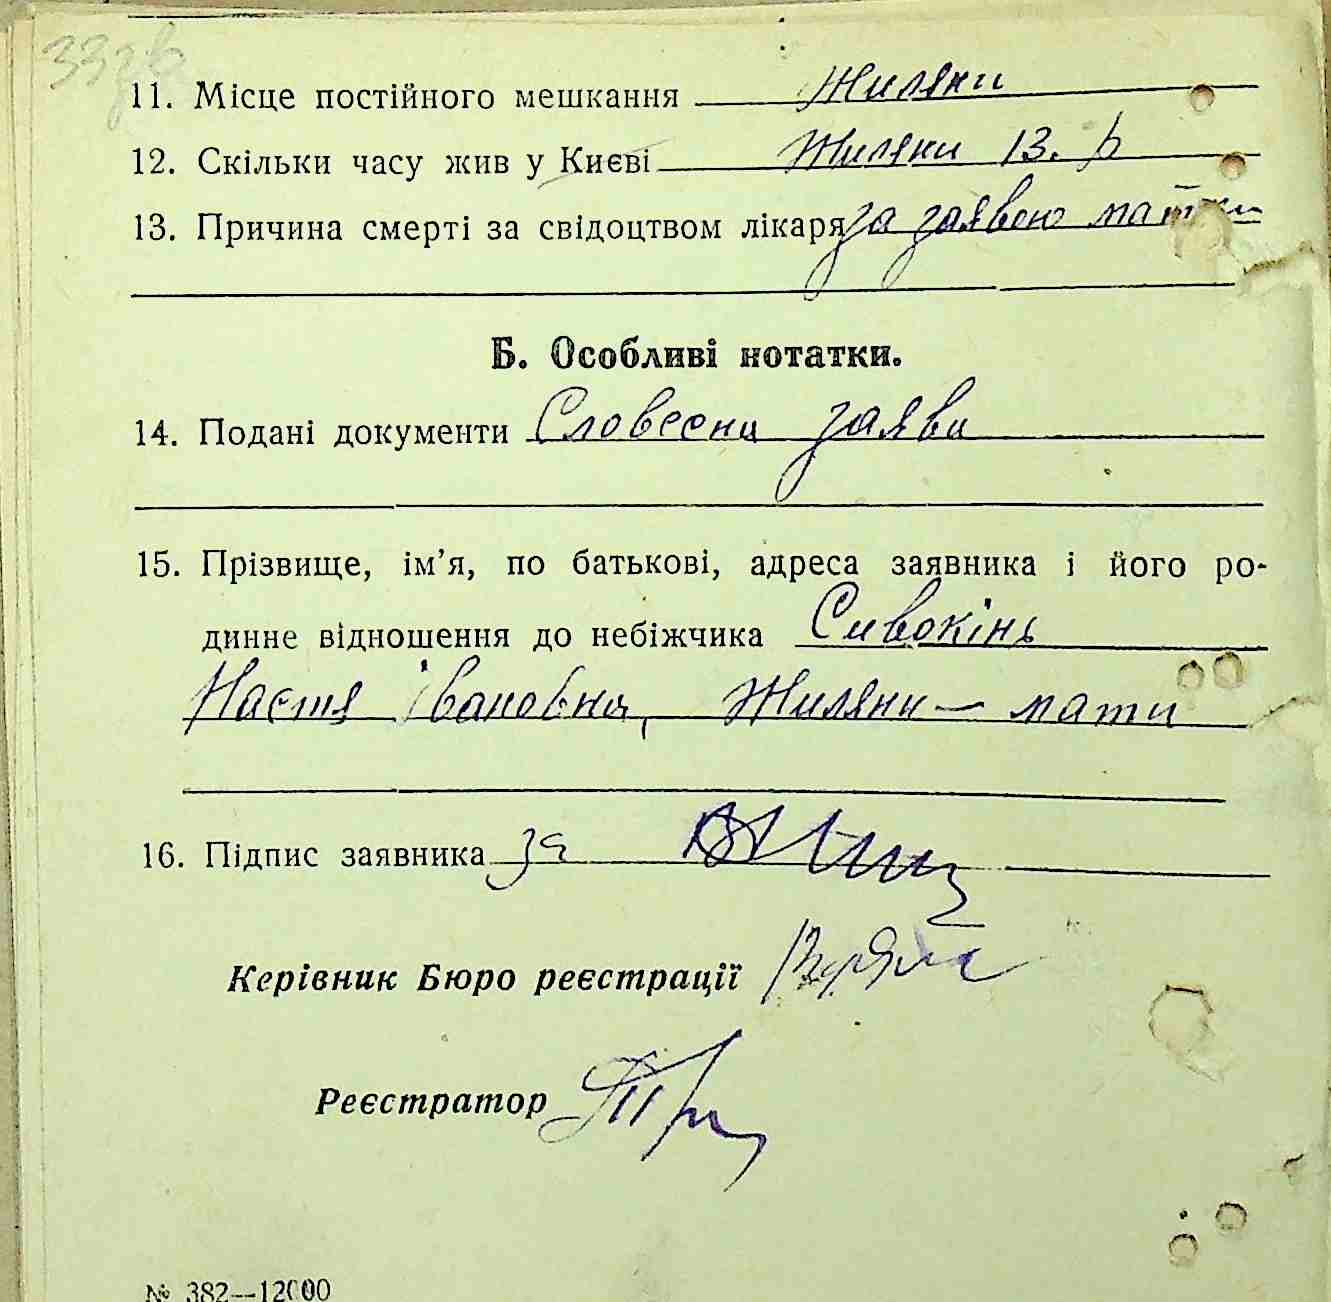 33зв
11. Місце постійного мешкання Жиляни
12. Скільки часу жив у Києві Жиляни 13. р
13. Причина смерті за свідоцтвом лікаря за заявою матки
Б. Особливі нотатки.
14. Подані документи Словесна заява
15. Прізвище, ім’я, по батькові, адреса заявника і його ро-
динне відношення до небіжчика Сивокінь
Настя Івановна, Жиляни — мати
16. Підпис заявника за
Керівник Бюро реєстрації
Реєстратор
№ 382--12000